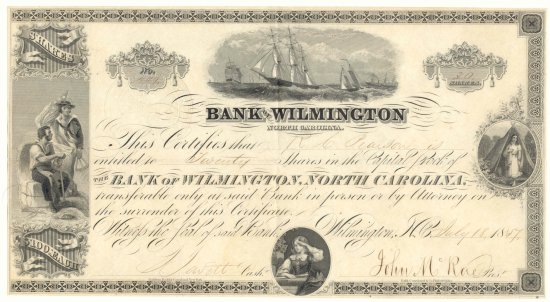 SHARES
No.
SHARES.
BANK OF WILMINGTON
NORTH CAROLINA.
This Certifies that
is
entitled to Twenty Shares in the Capital Stock of
THE BANK OF WILMINGTON, NORTH CAROLINA,
transferable only at said Bank in person or by Attorney on
the surrender of this Certificate.
Witness the Seal of said Bank, Wilmington, N.C. July 18 1847
Cash John McRae Pres